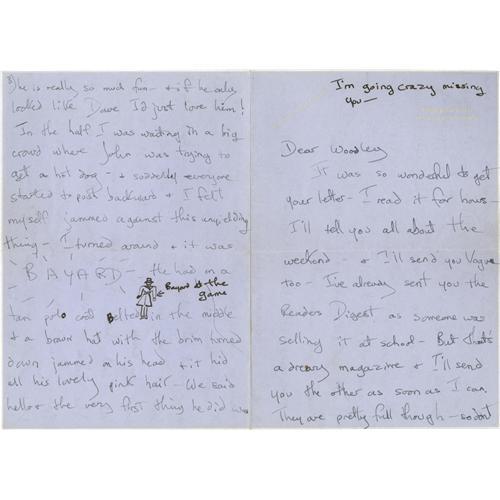 8) he is really so much fun - + if he only
looked like Dave I'd just love him!
In the half I was waiting in a big
crowd where John was trying to
get a hot dog - + suddenly everyone
started to push backward + I felt
myself jammed against this unyielding
thing - I turned around + it was
- BAYARD - He had on a
Bayard at the
game
tan polo coat Belted in the middle
+ a brown hat with the brim turned
down jammed on his head + it hid
all his lovely pink hair - We said
hello + the very first thing he did was
I'm going crazy missing
you -
Dear Woodley
It was so wonderful to get
your letter - I read it for hours -
I'll tell you all about the
weekend + I'll send you Vogue
too - I've already sent you the
Readers Digest as someone was
selling it at school - But that's
a dreary magazine + I'll send
you the other as soon as I can.
They are pretty full though - so don't